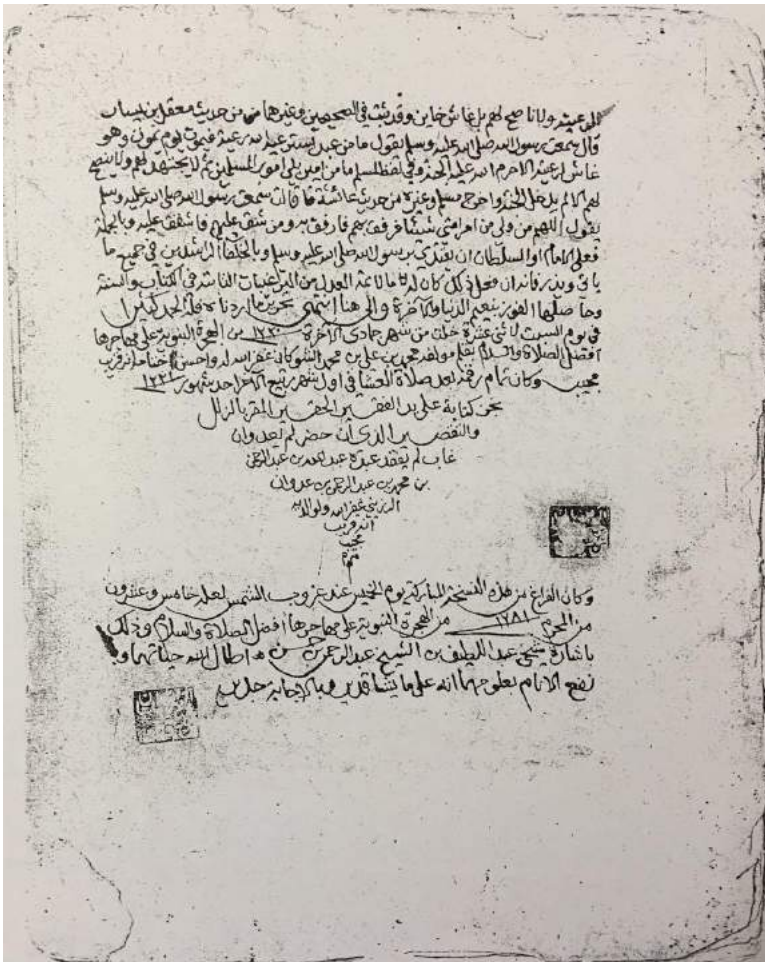 لرعيته ولا ناصح لهم بل غاش خاين وقد ثبت في الصحيحين وغيرهما من حديث معقل بن يسار
قال سمعت رسول الله صلى الله عليه وسلم يقول ما من عبد يسترعيه الله رعية فيموت يوم يموت وهو
غاش لرعيته الا حرم الله عليه الجنة وفي لفظ لمسلم ما من امير يلي امور المسلمين ثم لا يجتهد لهم ولا ينصح
لهم الا لم يدخل الجنة واخرج مسلم وغيره من حديث عائشة قالت سمعت رسول الله صلى الله عليه وسلم
يقول اللهم من ولي من امر امتي شيئا فرفق بهم فارفق به ومن شق عليهم فاشقق عليه وبالجملة
فعلى الامام او السلطان ان يقتدي برسول الله صلى الله عليه وسلم وبالخلفاء الراشدين في جميع ما
ياتي ويذر فانه ان فعل ذلك كان له ما لائمة العدل من الترغيبات الثابتة في الكتاب والسنة
وحاصلها الفوز بنعيم الدنيا والآخرة والى هنا انتهى تحرير ما اردناه فلله الحمد كثيرا
في يوم السبت لاثني عشرة خلت من شهر جمادى الآخرة من الهجرة النبوية على مهاجرها
افضل الصلاة والسلام بقلم مولفه محمد بن علي بن محمد الشوكاني غفر الله له واحسن ختامه انه قريب
مجيب وكان تمام رقمه بعد صلاة العشا في اول شهر ربيع الآخر احد شهور
كتابة على يد الفقير الحقير المقر بالزلل
والتقصير الذي ان حضر لم يعد وان
غاب لم يفقد عبده بن عبد الرحمن
بن محمد بن عبد الرحمن بن عدوان
غفر الله له ولوالديه
انه قريب
مجيب
وكان الفراغ من هذه النسخة المباركة يوم الخميس عند غروب الشمس لعله خامس وعشرون
من المحرم ١٢٨١ من الهجرة النبوية على مهاجرها افضل الصلاة والسلام وذلك
باشارة شيخي عبد اللطيف بن الشيخ عبد الرحمن بن حسن اطال الله حياتهما و
نفع الانام بعلومهما انه على ما يشا قدير وبالاجابة جدير